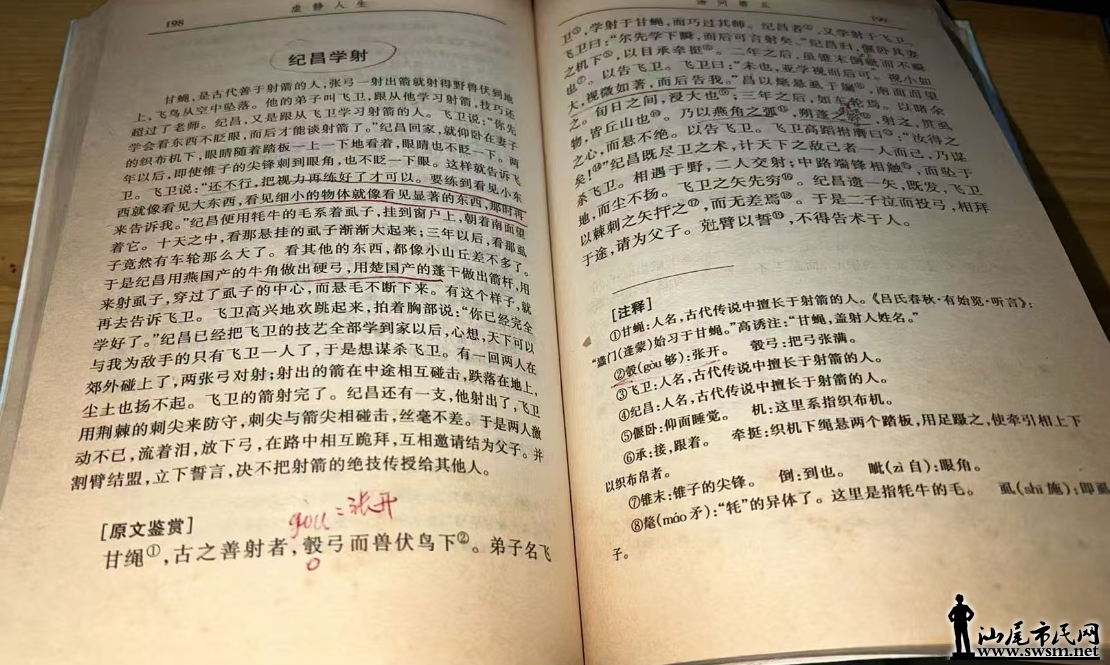 198
虚静人生
纪昌学射
甘蝇,是古代善于射箭的人,张弓一射出箭就射得野兽伏到地
上,飞鸟从空中坠落。他的弟子叫飞卫,跟从他学习射箭,技巧还
超过了老师。纪昌,又是跟从飞卫学习射箭的人。飞卫说:“你先
学会看东西不眨眼,而后才能谈射箭了。”纪昌回家,就仰卧在妻子
的织布机下,眼睛随着踏板一上一下地看着,眼睛也不眨一下。两
年以后,即使锥子的尖锋刺到眼角,也不眨一下眼。这样就告诉飞
卫。飞卫说:“还不行,把视力再练好了才可以。要练到看见小东
西就像看见大东西,看见细小的物体就像看见显著的东西,那时再
来告诉我。”纪昌便用牦牛的毛系着虱子,挂到窗户上,朝着南面望
着它。十天之中,看那悬挂的虱子渐渐大起来;三年以后,看那虱
子竟然有车轮那么大了。看其他的东西,都像小山丘差不多了。
于是纪昌用燕国产的牛角做出硬弓,用楚国产的蓬干做出箭杆,用
来射虱子,穿过了虱子的中心,而悬毛不断下来。有这个样子,就
再去告诉飞卫。飞卫高兴地欢跳起来,拍着胸部说:“你已经完全
学好了。”纪昌已经把飞卫的技艺全部学到家以后,心想,天下可以
与我为敌手的只有飞卫一人了,于是想谋杀飞卫。有一回两人在
郊外碰上了,两张弓对射;射出的箭在中途相互碰击,跌落在地上,
尘土也扬不起。飞卫的箭射完了。纪昌还有一支,他射出了,飞卫
用荆棘的刺尖来防守,刺尖与箭尖相碰击,丝毫不差。于是两人激
动不已,流着泪,放下弓,在路中相互跪拜,互相邀请结为父子。并
割臂结盟,立下誓言,决不把射箭的绝技传授给其他人。
gòu=张开
[原文鉴赏]
甘绳①,古之善射者,彀弓而兽伏鸟下②。弟子名飞
汤问第五
199
卫③,学射于甘蝇,而巧过其师。纪昌者④,又学射于飞卫。
飞卫曰:“尔先学不瞬,而后可言射矣。”纪昌归,偃卧其妻
之机下⑤,以目承牵挺⑥。二年之后,虽锥末倒眦而不瞬
也⑦。以告飞卫。飞卫曰:“未也,亚学视而后可。视小如
大,视微如著,而后告我。”昌以氂悬虱于牖⑧,南面而望
之。旬日之间,浸大也⑨;三年之后,如车轮焉。以睹余
物,皆丘山也⑩。乃以燕角之弧⑪,朔蓬之簳,射之,贯虱
之心,而悬不绝。以告飞卫。飞卫高蹈拊膺曰⑬,“汝得之
矣!⑭”纪昌既尽卫之术,计天下之敌己者一人而已,乃谋
杀飞卫。相遇于野,二人交射;中路端锋相触⑮,而坠于
地,而尘不扬。飞卫之矢先穷⑯。纪昌遗一矢,既发,飞卫
以棘刺之矢扞之⑰,而无差焉⑱。于是二子泣而投弓,相拜
于途,请为父子。剋臂以誓⑲,不得告术于人。
[注释]
①甘蝇:人名,古代传说中擅长于射箭的人。《吕氏春秋·有始览·听言》:
“蠭门(逢蒙)始习于甘蝇。”高诱注:“甘蝇,盖射人姓名。”
②彀(gòu 够):张开。 彀弓:把弓张满。
③飞卫:人名,古代传说中擅长于射箭的人。
④纪昌:人名,古代传说中擅长于射箭的人。
⑤偃卧:仰面睡觉。 机:这里系指织布机。
⑥承:接,跟着。 牵挺:织机下绳悬两个踏板,用足蹑之,使牵引相上下
以织布帛者。
⑦锥末:锥子的尖锋。 倒:到也。 眦(zì 自):眼角。
⑧氂(máo 矛):“牦”的异体了。这里是指牦牛的毛。 虱(shī 施):即虱
子。
汕尾市民网
www.swsm.net